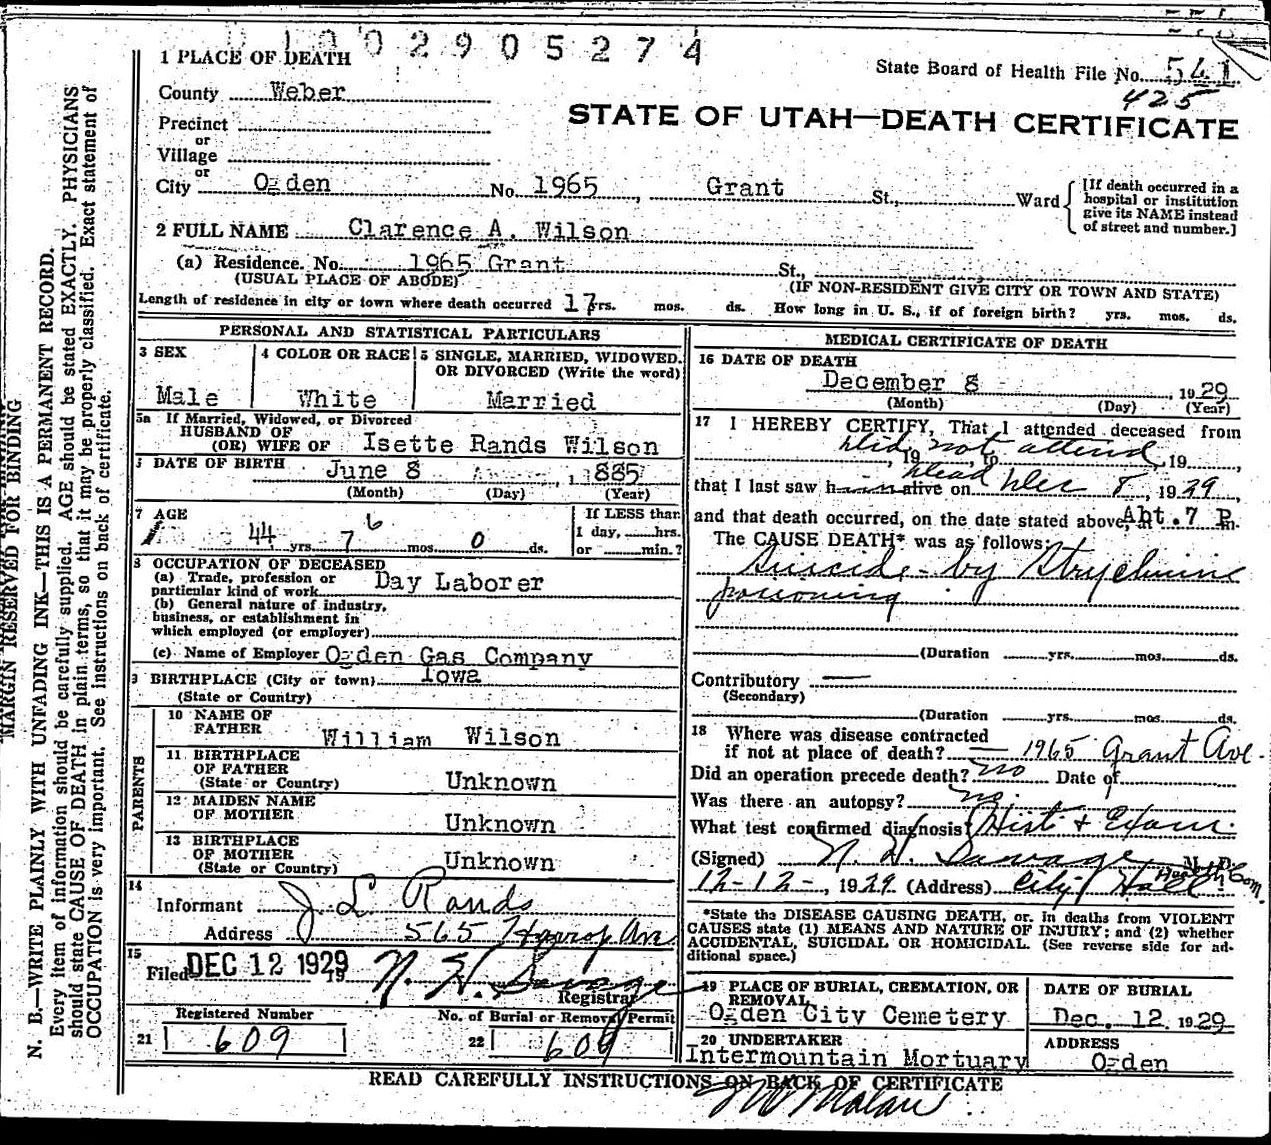 1002905274
1 PLACE OF DEATH
State Board of Health File No. 541
425
County Weber
STATE OF UTAH—DEATH CERTIFICATE
Precinct
or
Village
or
City Ogden No. 1965, Grant St., Ward
[If death occurred in a hospital or institution give its NAME instead of street and number.]
2 FULL NAME Clarence A. Wilson
(a) Residence. No. 1965 Grant St.,
(USUAL PLACE OF ABODE) (IF NON-RESIDENT GIVE CITY OR TOWN AND STATE)
Length of residence in city or town where death occurred 17 yrs. mos. ds. How long in U. S., if of foreign birth? yrs. mos. ds.
PERSONAL AND STATISTICAL PARTICULARS
3 SEX
Male
4 COLOR OR RACE
White
5 SINGLE, MARRIED, WIDOWED.
OR DIVORCED (Write the word)
Married
5a If Married, Widowed, or Divorced
HUSBAND OF
(OR) WIFE OF Isette Rands Wilson
DATE OF BIRTH June 8 1885
(Month) (Day) (Year)
7 AGE
44 yrs. 7 6 mos. 0 ds.
If LESS than
1 day, hrs.
or min.?
8 OCCUPATION OF DECEASED
(a) Trade, profession or
particular kind of work Day Laborer
(b) General nature of industry,
business, or establishment in
which employed (or employer)
(c) Name of Employer Ogden Gas Company
9 BIRTHPLACE (City or town) Iowa
(State or Country)
PARENTS
10 NAME OF
FATHER William Wilson
11 BIRTHPLACE
OF FATHER
(State or Country) Unknown
12 MAIDEN NAME
OF MOTHER Unknown
13 BIRTHPLACE
OF MOTHER
(State or Country) Unknown
14
Informant J. L. Rands
Address 565 Harrop Ave.
15
Filed DEC 12 1929 19 N. H. Savage
Registrar
Registered Number
21 609
No. of Burial or Removal Permit
22 609
MEDICAL CERTIFICATE OF DEATH
16 DATE OF DEATH
December 8, 1929
(Month) (Day) (Year)
17 I HEREBY CERTIFY, That I attended deceased from
did not attend, 19, to, 19,
that I last saw him alive on dead Dec 8, 1929,
and that death occurred, on the date stated above, at Abt. 7 P.m.
The CAUSE DEATH* was as follows:
Suicide - by Strychnine
poisoning
(Duration yrs. mos. ds.
Contributory —
(Secondary)
(Duration yrs. mos. ds.
18 Where was disease contracted
if not at place of death? — 1965 Grant Ave.
Did an operation precede death? no Date of
Was there an autopsy? no.
What test confirmed diagnosis? Hist & Exam
(Signed) N. H. Savage M. D.
Health Com.
12-12-, 1929 (Address) City Hall
*State the DISEASE CAUSING DEATH, or, in deaths from VIOLENT
CAUSES state (1) MEANS AND NATURE OF INJURY; and (2) whether
ACCIDENTAL, SUICIDAL OR HOMICIDAL. (See reverse side for ad-
ditional space.)
19 PLACE OF BURIAL, CREMATION, OR
REMOVAL
Ogden City Cemetery
DATE OF BURIAL
Dec. 12, 1929
20 UNDERTAKER
Intermountain Mortuary
ADDRESS
Ogden
READ CAREFULLY INSTRUCTIONS ON BACK OF CERTIFICATE
Malan
MARGIN RESERVED FOR BINDING
N. B.—WRITE PLAINLY WITH UNFADING INK—THIS IS A PERMANENT RECORD.
Every item of information should be carefully supplied. AGE should be stated EXACTLY. PHYSICIANS
should state CAUSE OF DEATH in plain terms, so that it may be properly classified. Exact statement of
OCCUPATION is very important. See instructions on back of certificate.